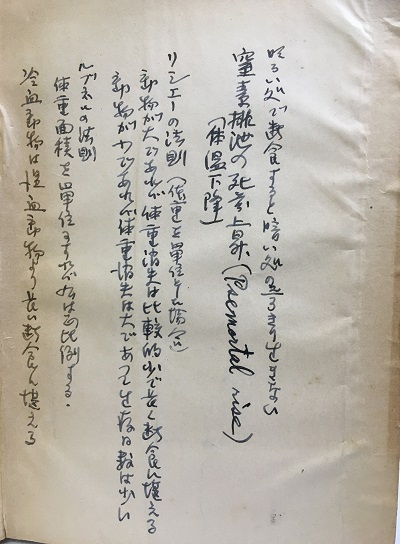 明るい処で断食すると暗い処のよりきりせまない
窒素排泄の死前上昇(Praemortal rise)
[体温下降]
リシエーの法則(体重を単位とした場合)
動物が大であれば体重消失は比較的少で長く断食に堪える
動物が少であれば体重消失は大であって生存日数は少い
ルブネルの法則
体重面積を単位とすれば 正比例する.
冷血動物は温血動物より長い断食に堪える